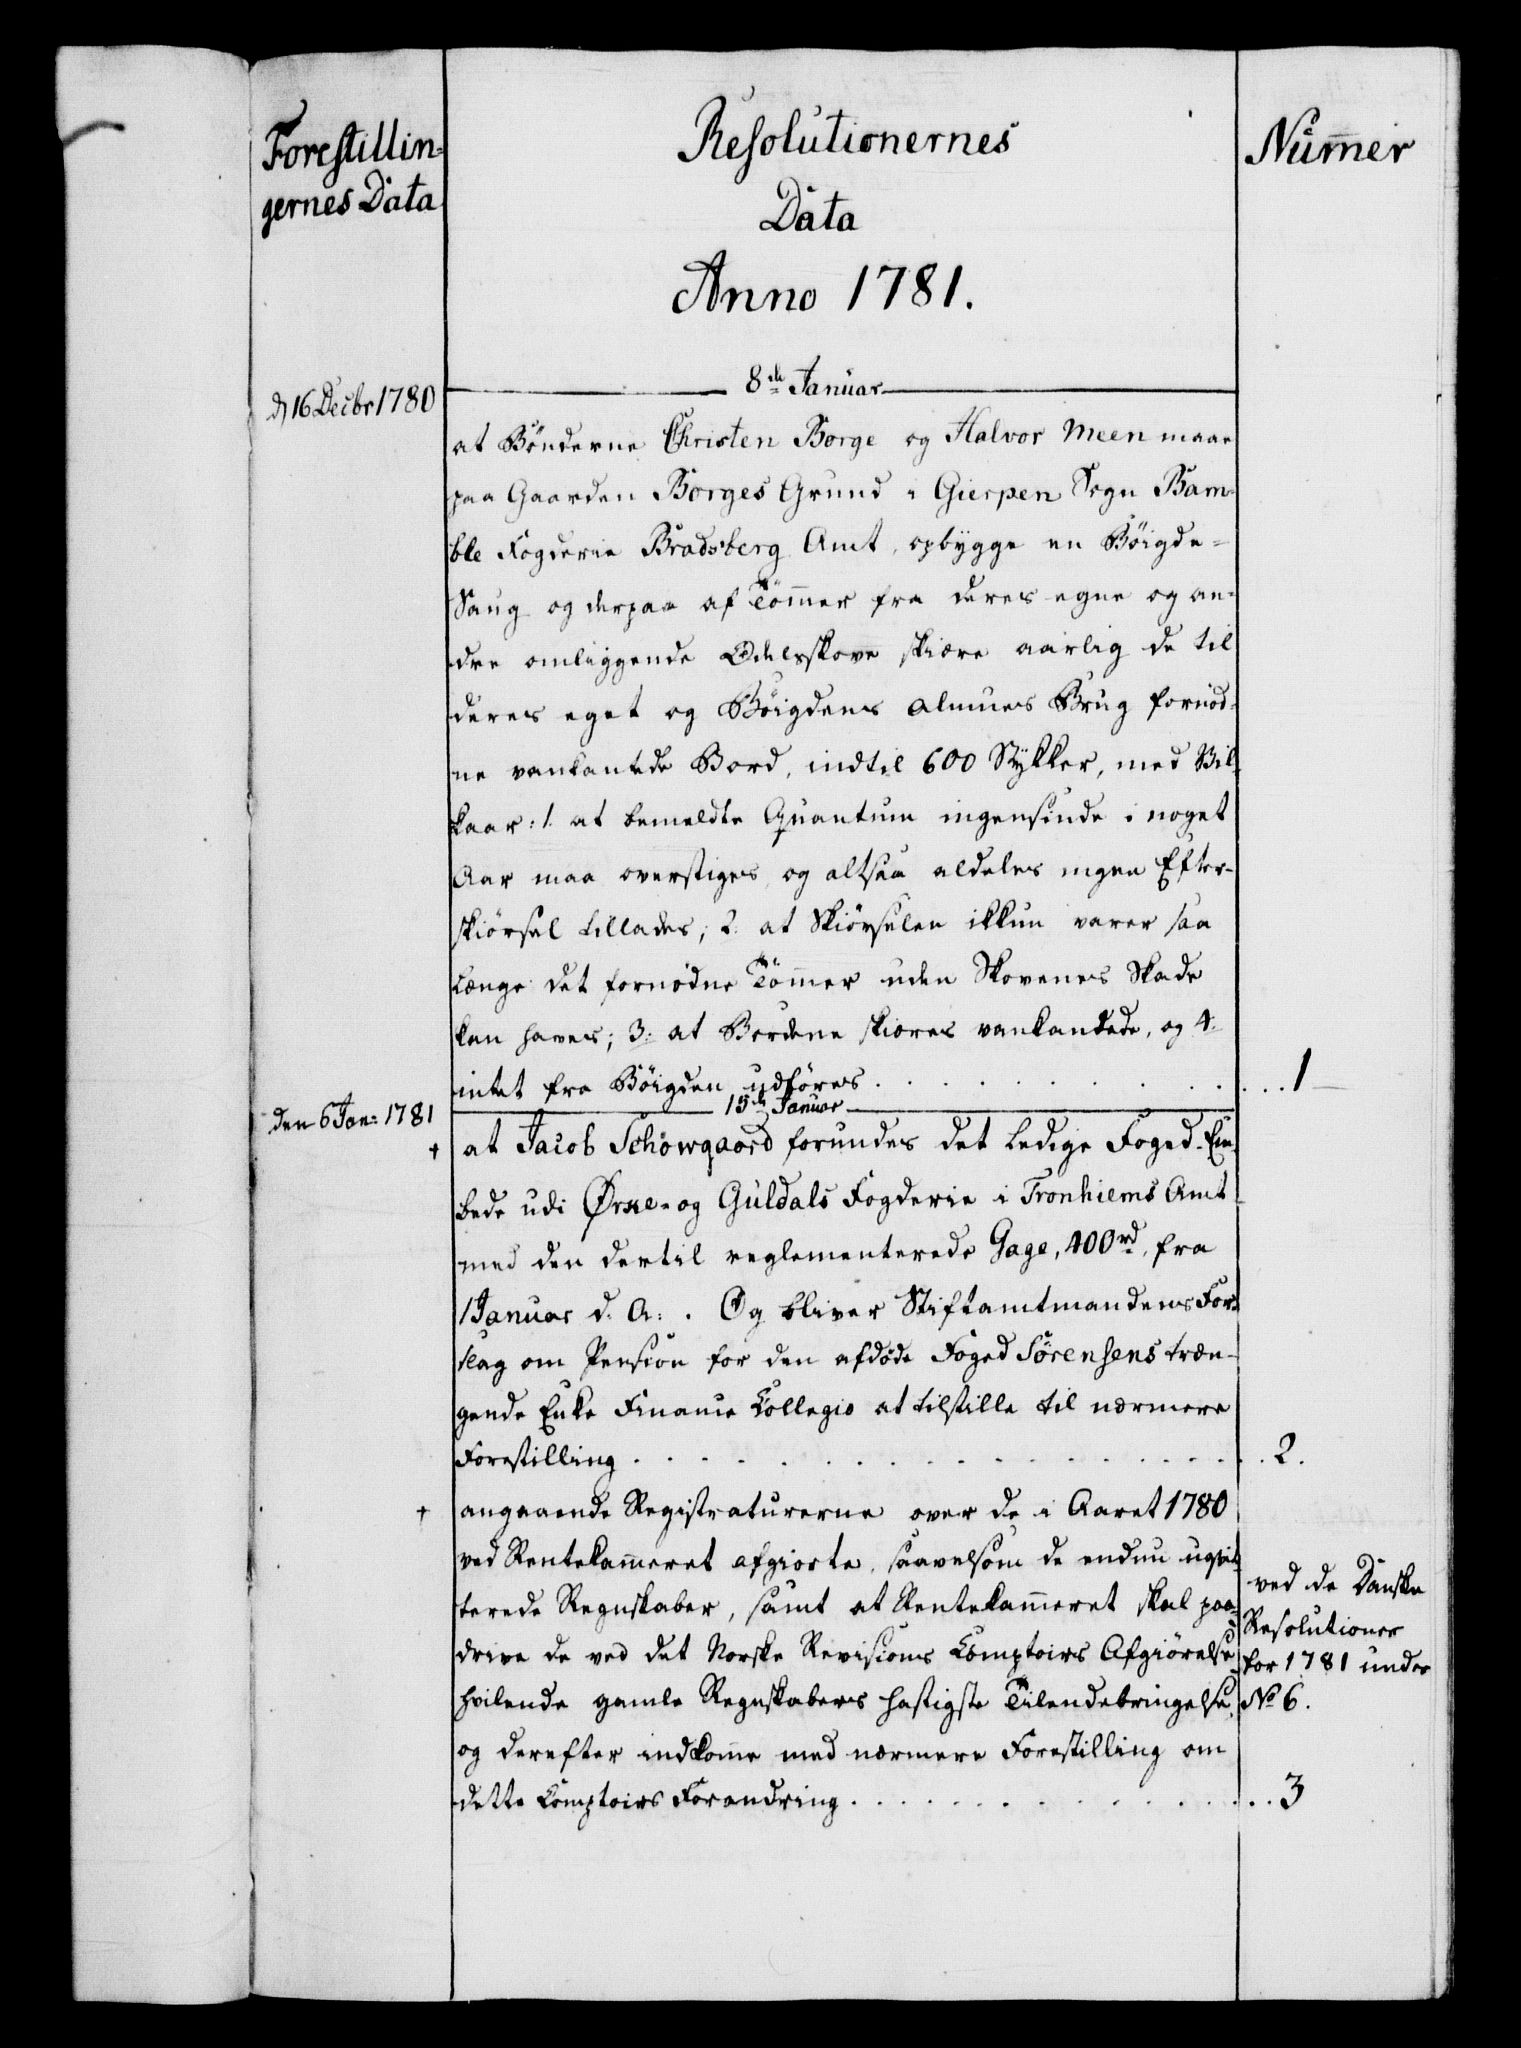 Forestillin-
gernes Data
Resolutionernes
Data
Anno 1781.
Nu̅mer
8de Januar
d 16 Decbr 1780
at Bönderne Christen Borge og Halvor Meen maae
paa Gaarden Borges Grund i Gierpen Sogn Bam-
ble Fogderie Bradsberg Amt, opbygge en Böigde-
Saug og derpaa af Tömmer fra deres egne og an-
dre omliggende Odelsskove skiære aarlig de til
deres eget og Böigdens Almues Brug fornöd-
ne vankantede Bord, indtil 600 Stykker, med Vil-
kaar: 1. at bemeldte Quantum ingensinde i noget
Aar maa overstiges, og altsaa aldeles ingen Efter-
skiörsel tillades; 2. at Skiörselen ikkun varer saa
længe det fornødne Tömmer uden Skovenes Skade
kan haves; 3: at Bordene skiæres vankandede, og 4:
intet fra Böigden udföres . . . . . . . . . . 1
15de Januar
den 6 Jan: 1781
† at Jacob Schöwgaard forundes det ledige Foged-Em-
bede udi Ørke- og Guldals Fogderie i Tronhiems Amt
med den dertil reglementerede Gage, 400 rd, fra
1 Januar d. A: . Og bliver Stiftamtmandens For-
slag om Pension for den afdöde Foged Sörensens træn-
gende Enke Finance Collegio at tilstille til nærmere
Forestilling . . . . . . . . . . . . . . . 2.
† angaaende Registraturerne over de i Aaret 1780
ved Rentekammeret afgiorte, saavelsom de endnu uqvit-
terede Regnskaber, samt at Rentekammeret skal paa-
drive de ved det Norske Revisions Comptoirs Afgiörelse
hvilende gamle Regnskabers hastigste Tilendebringelse,
og derefter indkomme med nærmere Forestilling om
dette Comptoirs Forandring . . . . . . . . . . 3
ved de Danske
Resolutioner
for 1781 under
No 6.